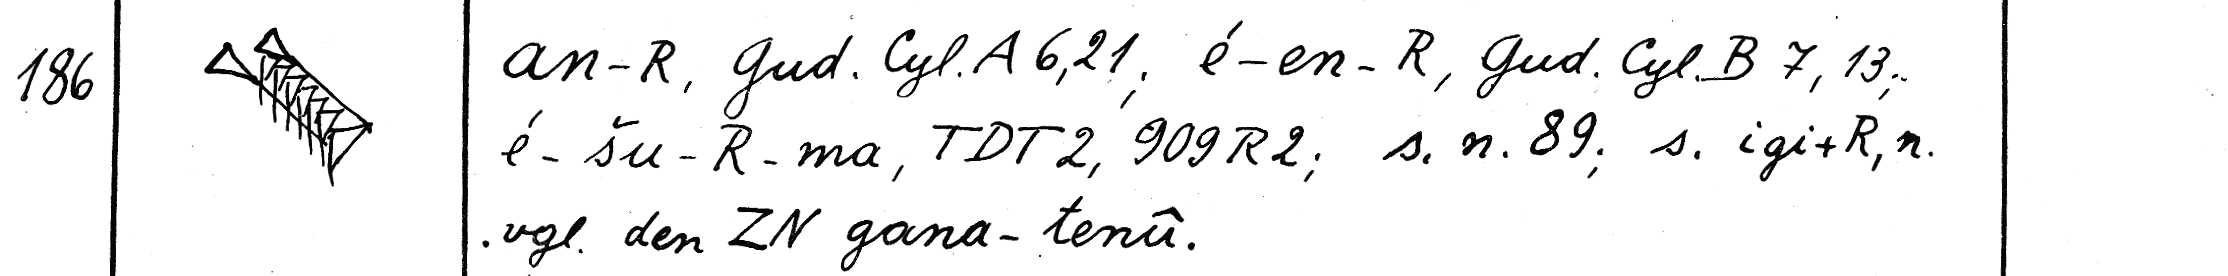 186 an-R, Gud. Cyl. A 6,21; é-en-R, Gud. Cyl. B 7,13;
é-šu-R-ma, TDT 2, 909 R 2; s. n. 89; s. igi+R, n.
. vgl. den ZN gana-tenû.